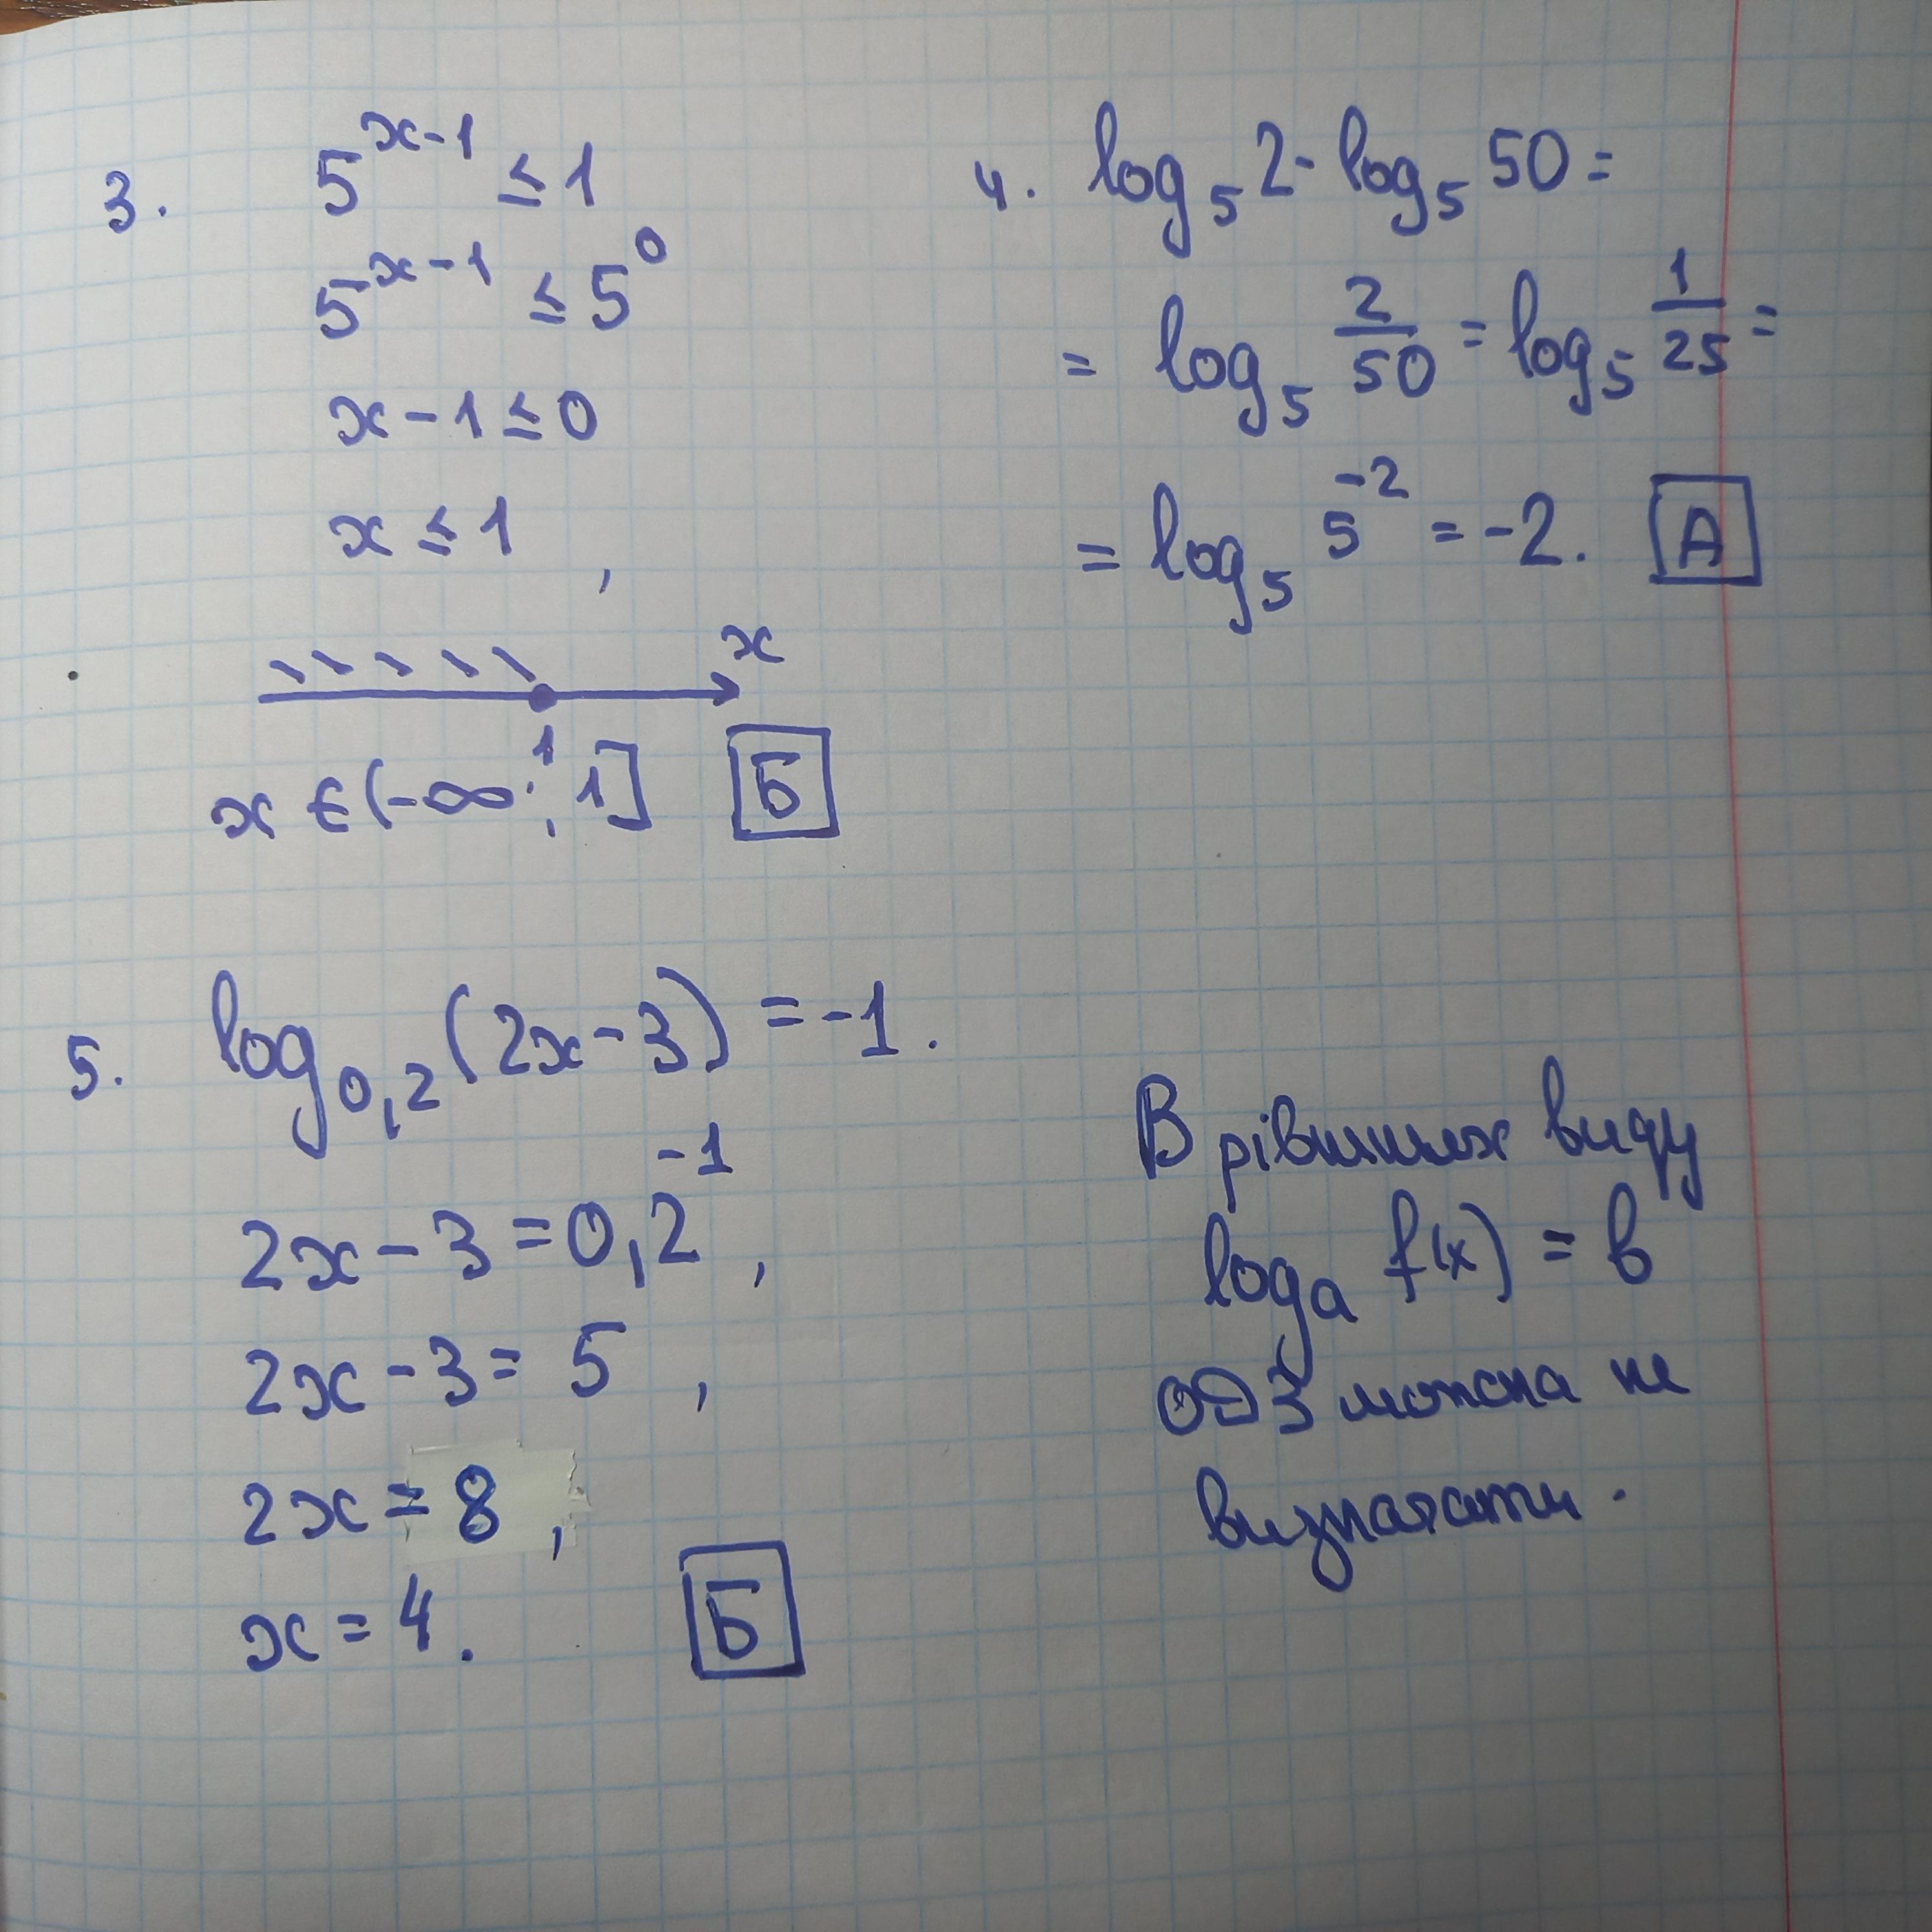 3. 5^{x-1} ≤ 1
5^{x-1} ≤ 5^0
x - 1 ≤ 0
x ≤ 1 ,
x
1
x ∈ (-∞; 1] Б
4. log_5 2 - log_5 50 =
= log_5 \frac{2}{50} = log_5 \frac{1}{25} =
= log_5 5^{-2} = -2. А
5. log_{0,2} (2x - 3) = -1.
2x - 3 = 0,2^{-1} ,
2x - 3 = 5 ,
2x = 8 ,
x = 4. Б
В рівнннях виду
log_a f(x) = b
ОДЗ можна не
визначати.